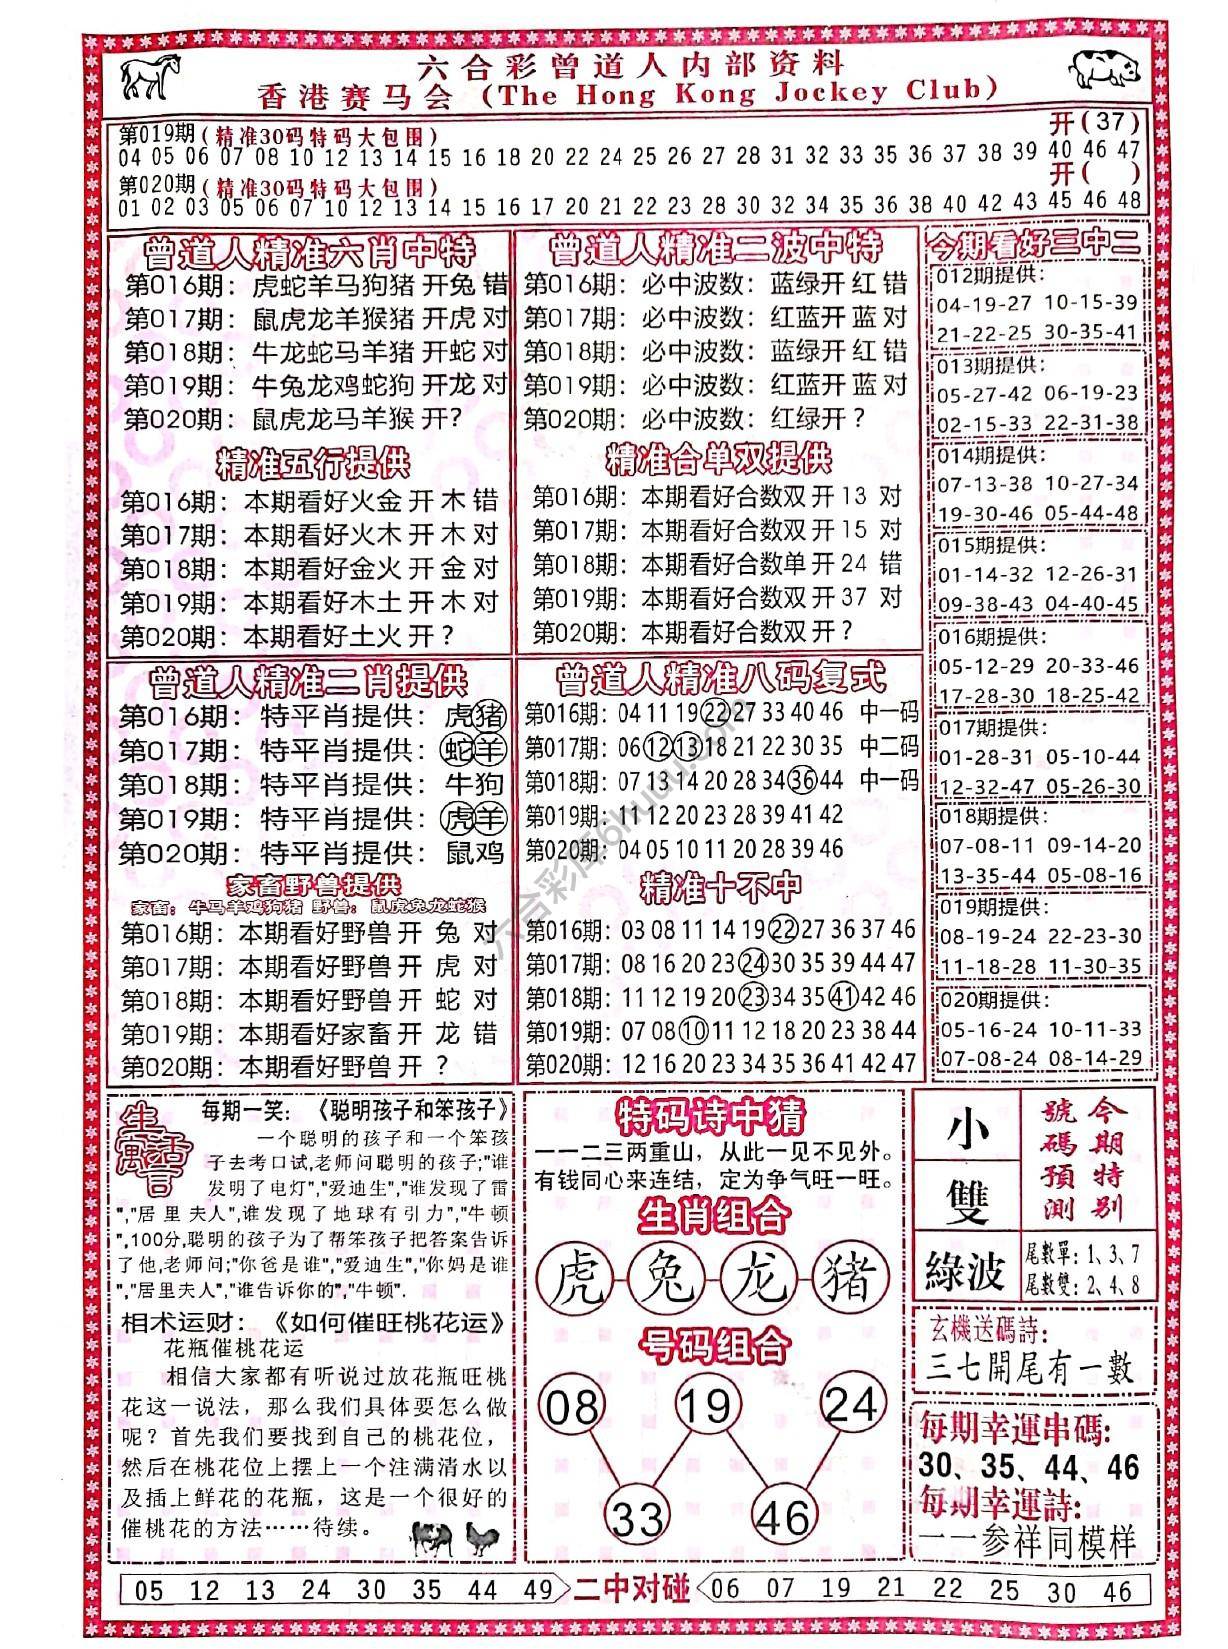 六合彩曾道人内部资料
香港赛马会 (The Hong Kong Jockey Club)
第019期(精准30码特码大包围) 开(37)
04 05 06 07 08 10 12 13 14 15 16 18 20 22 24 25 26 27 28 31 32 33 35 36 37 38 39 40 46 47
第020期(精准30码特码大包围) 开( )
01 02 03 05 06 07 10 12 13 14 15 16 17 20 21 22 23 28 30 32 34 35 36 38 40 42 43 45 46 48
曾道人精准六肖中特
第016期：虎蛇羊马狗猪 开兔 错
第017期：鼠虎龙羊猴猪 开虎 对
第018期：牛龙蛇马羊猪 开蛇 对
第019期：牛兔龙鸡蛇狗 开龙 对
第020期：鼠虎龙马羊猴 开?
精准五行提供
第016期：本期看好火金 开 木 错
第017期：本期看好火木 开 木 对
第018期：本期看好金火 开 金 对
第019期：本期看好木土 开 木 对
第020期：本期看好土火 开 ?
曾道人精准二波中特
第016期：必中波数：蓝绿开 红 错
第017期：必中波数：红蓝开 蓝 对
第018期：必中波数：蓝绿开 红 错
第019期：必中波数：红蓝开 蓝 对
第020期：必中波数：红绿开 ?
精准合单双提供
第016期：本期看好合数双 开 13 对
第017期：本期看好合数双 开 15 对
第018期：本期看好合数单 开 24 错
第019期：本期看好合数双 开 37 对
第020期：本期看好合数双 开?
今期看好三中二
012期提供:
04-19-27 10-15-39
21-22-25 30-35-41
013期提供:
05-27-42 06-19-23
02-15-33 22-31-38
014期提供:
07-13-38 10-27-34
19-30-46 05-44-48
015期提供:
01-14-32 12-26-31
09-38-43 04-40-45
016期提供:
05-12-29 20-33-46
17-28-30 18-25-42
017期提供:
01-28-31 05-10-44
12-32-47 05-26-30
018期提供:
07-08-11 09-14-20
13-35-44 05-08-16
019期提供:
08-19-24 22-23-30
11-18-28 11-30-35
020期提供:
05-16-24 10-11-33
07-08-24 08-14-29
曾道人精准二肖提供
第016期：特平肖提供：虎猪
第017期：特平肖提供：蛇羊
第018期：特平肖提供：牛狗
第019期：特平肖提供：虎羊
第020期：特平肖提供：鼠鸡
家畜野兽提供
家畜：牛马羊鸡狗猪 野兽：鼠虎兔龙蛇猴
第016期：本期看好野兽 开 兔 对
第017期：本期看好野兽 开 虎 对
第018期：本期看好野兽 开 蛇 对
第019期：本期看好家畜 开 龙 错
第020期：本期看好野兽 开 ?
曾道人精准八码复式
第016期：04 11 19 22 27 33 40 46 中一码
第017期：06 12 13 18 21 22 30 35 中二码
第018期：07 13 14 20 28 34 36 44 中一码
第019期：11 12 20 23 28 39 41 42
第020期：04 05 10 11 20 28 39 46
精准十不中
第016期：03 08 11 14 19 22 27 36 37 46
第017期：08 16 20 23 24 30 35 39 44 47
第018期：11 12 19 20 23 34 35 41 42 46
第019期：07 08 10 11 12 18 20 23 38 44
第020期：12 16 20 23 34 35 36 41 42 47
生活寓言
每期一笑：《聪明孩子和笨孩子》
一个聪明的孩子和一个笨孩
子去考口试,老师问聪明的孩子;"谁
发明了电灯","爱迪生","谁发现了雷
","居里夫人",谁发现了地球有引力","牛顿
",100分,聪明的孩子为了帮笨孩子把答案告诉
了他,老师问;"你爸是谁","爱迪生","你妈是谁
","居里夫人","谁告诉你的","牛顿".
相术运财：《如何催旺桃花运》
花瓶催桃花运
相信大家都有听说过放花瓶旺桃
花这一说法，那么我们具体要怎么做
呢？首先我们要找到自己的桃花位，
然后在桃花位上摆上一个注满清水以
及插上鲜花的花瓶，这是一个很好的
催桃花的方法……待续。
特码诗中猜
一一二三两重山，从此一见不见外。
有钱同心来连结，定为争气旺一旺。
生肖组合
虎 兔 龙 猪
号码组合
08 19 24
33 46
小
雙
綠波
今期特别
號碼預測
尾數單：1、3、7
尾數雙：2、4、8
玄機送碼詩:
三七開尾有一數
每期幸運串碼:
30、35、44、46
每期幸運詩:
一一参祥同模样
05 12 13 24 30 35 44 49 二中对碰 06 07 19 21 22 25 30 46
六合彩库.6huuu.com